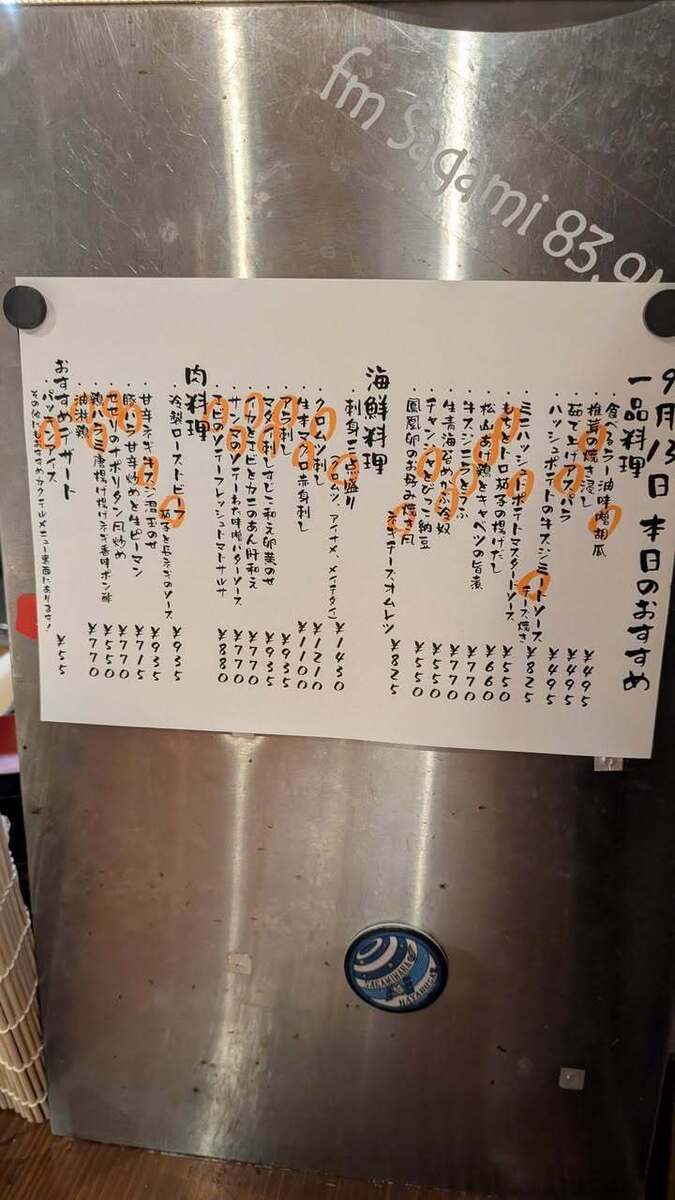 fm Sagami 83.9
9月13日 本日のおすすめ
一品料理
・食べるラー油味噌胡瓜 ¥495
・椎茸の焼き浸し ¥495
・茹で上げアスパラ ¥495
・ハッシュポテトの牛スジミートソースチーズ焼き ¥825
・ミニハッシュドポテトマスタードソース ¥550
・もちとトロ茄子の揚げだし ¥660
・松山あげ鶏とキャベツの旨煮 ¥770
・牛スジニラとうふ ¥770
・生青海苔めかぶ冷奴 ¥550
・チャンジャとびっこ納豆 ¥550
・鳳凰卵のお好み焼き風ネギチーズオムレツ ¥825
海鮮料理
・刺身三点盛り(クロムツ、アイナメ、メイチダイ) ¥1430
・クロムツ刺し ¥1210
・生本マグロ赤身刺し ¥1100
・アラ刺し ¥935
・マダイ刺しすじこ和え卵黄のせ ¥935
・イカとエビとカニのあん肝和え ¥770
・サンマのソテーわた味噌バターソース ¥770
・エビのソテーフレッシュトマトサルサ ¥880
肉料理
・冷製ローストビーフ 茄子と長ネギのソース ¥935
・甘辛ネギ牛スジ温玉のせ ¥935
・豚バラ甘辛炒めと生ピーマン ¥715
・せせりのナポリタン風炒め ¥770
・鶏ハラミ唐揚げ揚げネギ香味ポン酢 ¥550
・油淋鶏 ¥770
おすすめデザート
・パッションアイス ¥55
その他にもおすすめカクテルメニュー裏面にあります!
SAGAMIHARA
HAYABUSA